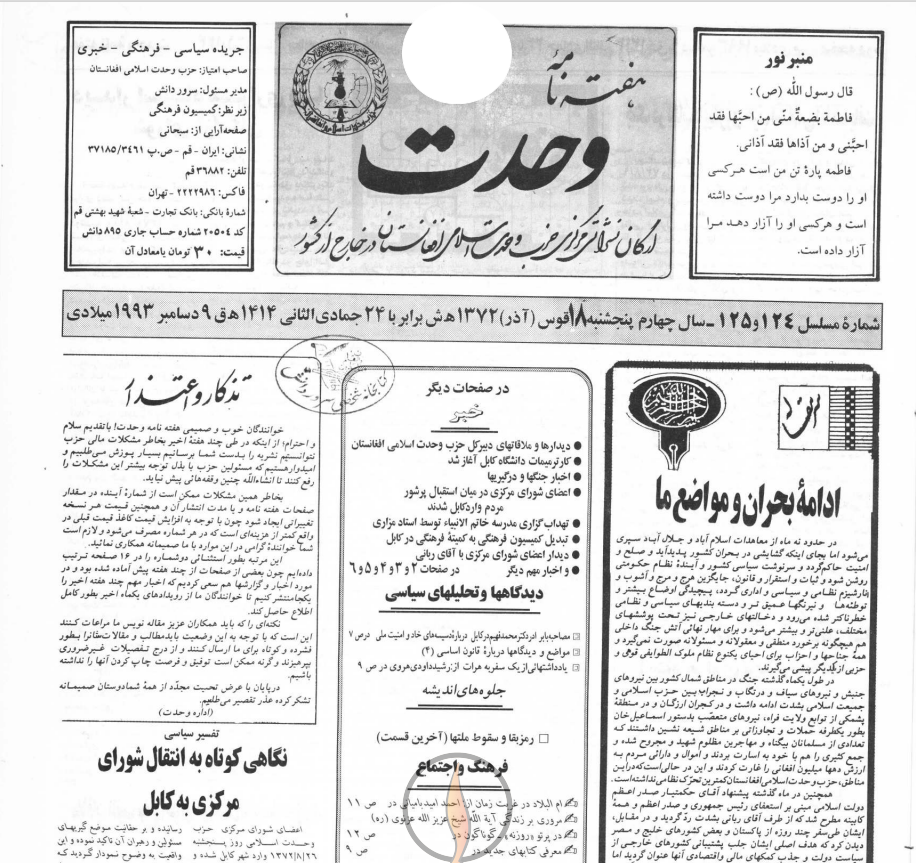 منبر نور
قال رسول الله (ص) :
فاطمة بضعةٌ منّی من احبَّها فقد
احبَّنی و من آذاها فقد آذانی.
فاطمه پارهٔ تن من است هرکسی
او را دوست بدارد مرا دوست داشته
است و هرکسی او را آزار دهد مرا
آزار داده است.
هفته نامه
وحدت
ارگان نشراتی مرکزی حزب وحدت اسلامی افغانستان در خارج از کشور
جریده سیاسی - فرهنگی - خبری
صاحب امتیاز: حزب وحدت اسلامی افغانستان
مدیر مسئول: سرور دانش
زیر نظر: کمیسیون فرهنگی
صفحه‌آرایی از: سبحانی
نشانی: ایران - قم - ص.پ ۳۷۱۸۵/۳۴۶۱
تلفن: ۳۶۸۸۲ قم
فاکس: ۲۲۲۲۹۸۶ - تهران
شمارهٔ بانکی: بانک تجارت - شعبهٔ شهید بهشتی قم
کد ۲۰۵۰۴ شماره حساب جاری ۸۹۵ دانش
قیمت: ۳۰ تومان یا معادل آن
شمارهٔ مسلسل ۱۲۴ و ۱۲۵ - سال چهارم پنجشنبه ۱۸ قوس (آذر) ۱۳۷۲ ه‍ ش برابر با ۲۴ جمادی الثانی ۱۴۱۴ ه‍ ق ۹ دسامبر ۱۹۹۳ میلادی
ادامهٔ بحران و مواضع ما
در حدود نه ماه از معاهدات اسلام آباد و جلال آباد سپری
می‌شود اما بجای اینکه گشایشی در بحران کشور پدیدآید و صلح و
امنیت حاکم گردد و سرنوشت سیاسی کشور و آیندهٔ نظام حکومتی
روشن شود و ثبات و استقرار و قانون، جایگزین هرج و مرج و آشوب و
نارشیزم نظامی و سیاسی و اداری گردد، پیچیدگی اوضاع بیشتر و
توطئه‌ها و نیرنگها عمیق تر و دسته بندیهای سیاسی و نظامی
خطرناکتر شده می‌رود و دخالتهای خارجی نیز تحت پوششهای
مختلف، علنی‌تر و بیشتر می‌شود و برای مهار نهائی آتش جنگ داخلی
هم هیچگونه برخورد منطقی و معقولانه و مسئولانه صورت نمی‌گیرد و
همهٔ جناحها و احزاب برای احیای یکنوع نظام ملوک الطوایفی قومی و
حزبی از یکدیگر پیشی می‌گیرند.
در طول یکماه گذشته جنگ در مناطق شمال کشور بین نیروهای
جنبش و نیروهای سیاف و در تگاب و نجراب بین حزب اسلامی و
جمعیت اسلامی بشدت ادامه داشت و در کجران ارزگان و در منطقهٔ
پشمکی از توابع ولایت فراه، نیروهای متعصّب بدستور اسماعیل خان
بطور یکطرفه حملات و تجاوزاتی بر مناطق شیعه نشین داشتند که
تعدادی از مسلمانان بیگناه و مهاجرین مظلوم شهید و مجروح شده و
جمع کثیری را هم با خود به اسارت بردند و اموال و دارائی مردم به
ارزش دهها میلیون افغانی را غارت کردند و این در حالی است که در این
مناطق، حزب وحدت اسلامی افغانستان کمترین تحرّک نظامی نداشته است.
همچنین در ماه گذشته پیشنهاد آقای حکمتیار صدر اعظم
دولت اسلامی مبنی بر استعفای رئیس جمهوری و صدر اعظم و همهٔ
کابینه مطرح شد که از طرف آقای ربانی بشدت ردّ گردید و در مقابل،
ایشان طی سفر چند روزه از پاکستان و بعض کشورهای خلیج و مصر
دیدن کرد که هدف اصلی ایشان جلب پشتیبانی کشورهای خارجی از
سیاست دولت و جذب کمکهای مالی و اقتصادی آنها عنوان گردید اما
در صفحات دیگر
خبر
● دیدارها و ملاقاتهای دبیرکل حزب وحدت اسلامی افغانستان
● کار ترمیمات دانشگاه کابل آغاز شد
● اخبار جنگها و درگیریها
● اعضای شورای مرکزی در میان استقبال پرشور
مردم وارد کابل شدند
● تهداب گزاری مدرسه خاتم الانبیاء توسط استاد مزاری
● تبدیل کمیسیون فرهنگی به کمیتهٔ فرهنگی در کابل
● دیدار اعضای شورای مرکزی با آقای ربانی
● و اخبار مهم دیگر در صفحات ۲ و ۳ و ۴ و ۵ و ۶
دیدگاهها و تحلیلهای سیاسی
مصاحبه با برادر دکتر محمد فهیم در کابل دربارهٔ دسیسه‌های خاد و امنیت ملی در ص ۷
مواضع و دیدگاهها دربارهٔ قانون اساسی (۴)
یادداشتهائی از یک سفر به هرات از: رشید داودی هروی در ص ۹
جلوه‌های اندیشه
□ رمز بقا و سقوط ملتها (آخرین قسمت)
فرهنگ و اجتماع
ام البلاد در غربت زمان از: احمد امید بامیانی در ص ۱۱
مروری بر زندگی آیة الله شیخ عزیز الله غزنوی (ره)
در پرتو «روزنه‌های» گوناگون در ص ۱۲
معرفی کتابهای جدید در ص ۹
تذکار و اعتذار
خوانندگان خوب و صمیمی هفته نامه وحدت! با تقدیم سلام
و احترام؛ از اینکه در طی چند هفتهٔ اخیر بخاطر مشکلات مالی حزب
نتوانستیم نشریه را بدست شما برسانیم بسیار پوزش می‌طلبیم و
امیدوار هستیم که مسئولین حزب با بذل توجه بیشتر این مشکلات را
رفع کنند تا انشاءالله چنین وقفه‌هائی پیش نیاید.
بخاطر همین مشکلات ممکن است از شمارهٔ آینده در مقدار
صفحات هفته نامه و یا مدت انتشار آن و همچنین قیمت هر نسخه
تغییراتی ایجاد شود چون با توجه به افزایش قیمت کاغذ قیمت قبلی در
واقع کمتر از هزینه‌ای است که در هر شماره مصرف می‌شود و لازم است
شما خوانندهٔ گرامی در این موارد با ما صمیمانه همکاری نمائید.
این مرتبه بطور استثنائی دو شماره را در ۱۶ صفحه ترتیب
داده‌ایم چون بعضی از صفحات از چند هفته پیش آماده شده بود و در
مورد اخبار و گزارشها هم سعی کردیم که اخبار مهم چند هفته اخیر را
یکجا منتشر کنیم تا خوانندگان ما از رویدادهای یکماه اخیر بطور کامل
اطلاع حاصل کند.
نکته‌ای را که باید همکاران عزیز مقاله نویس ما مراعات کنند
این است که با توجه به این وضعیت باید مطالب و مقالات شانرا بطور
فشرده و کوتاه برای ما ارسال کنند و از درج تفصیلات غیرضروری
بپرهیزند و گرنه ممکن است توفیق و فرصت چاپ کردن آنها را نداشته
باشیم.
در پایان با عرض تحیت مجدّد از همهٔ شما دوستان صمیمانه
تشکر کرده عذر تقصیر می‌طلبیم.
(اداره وحدت)
تفسیر سیاسی
نگاهی کوتاه به انتقال شورای
مرکزی به کابل
اعضای شورای مرکزی حزب
وحدت اسلامی روز پنجشنبه
۱۳۷۲/۸/۲۶ وارد شهر کابل شده و
رسانیده و بر حقانیت موضع گیریهای
مسئولین و رهبران آن تاکید نموده و این
واقعیت به وضوح نمودار گردید که